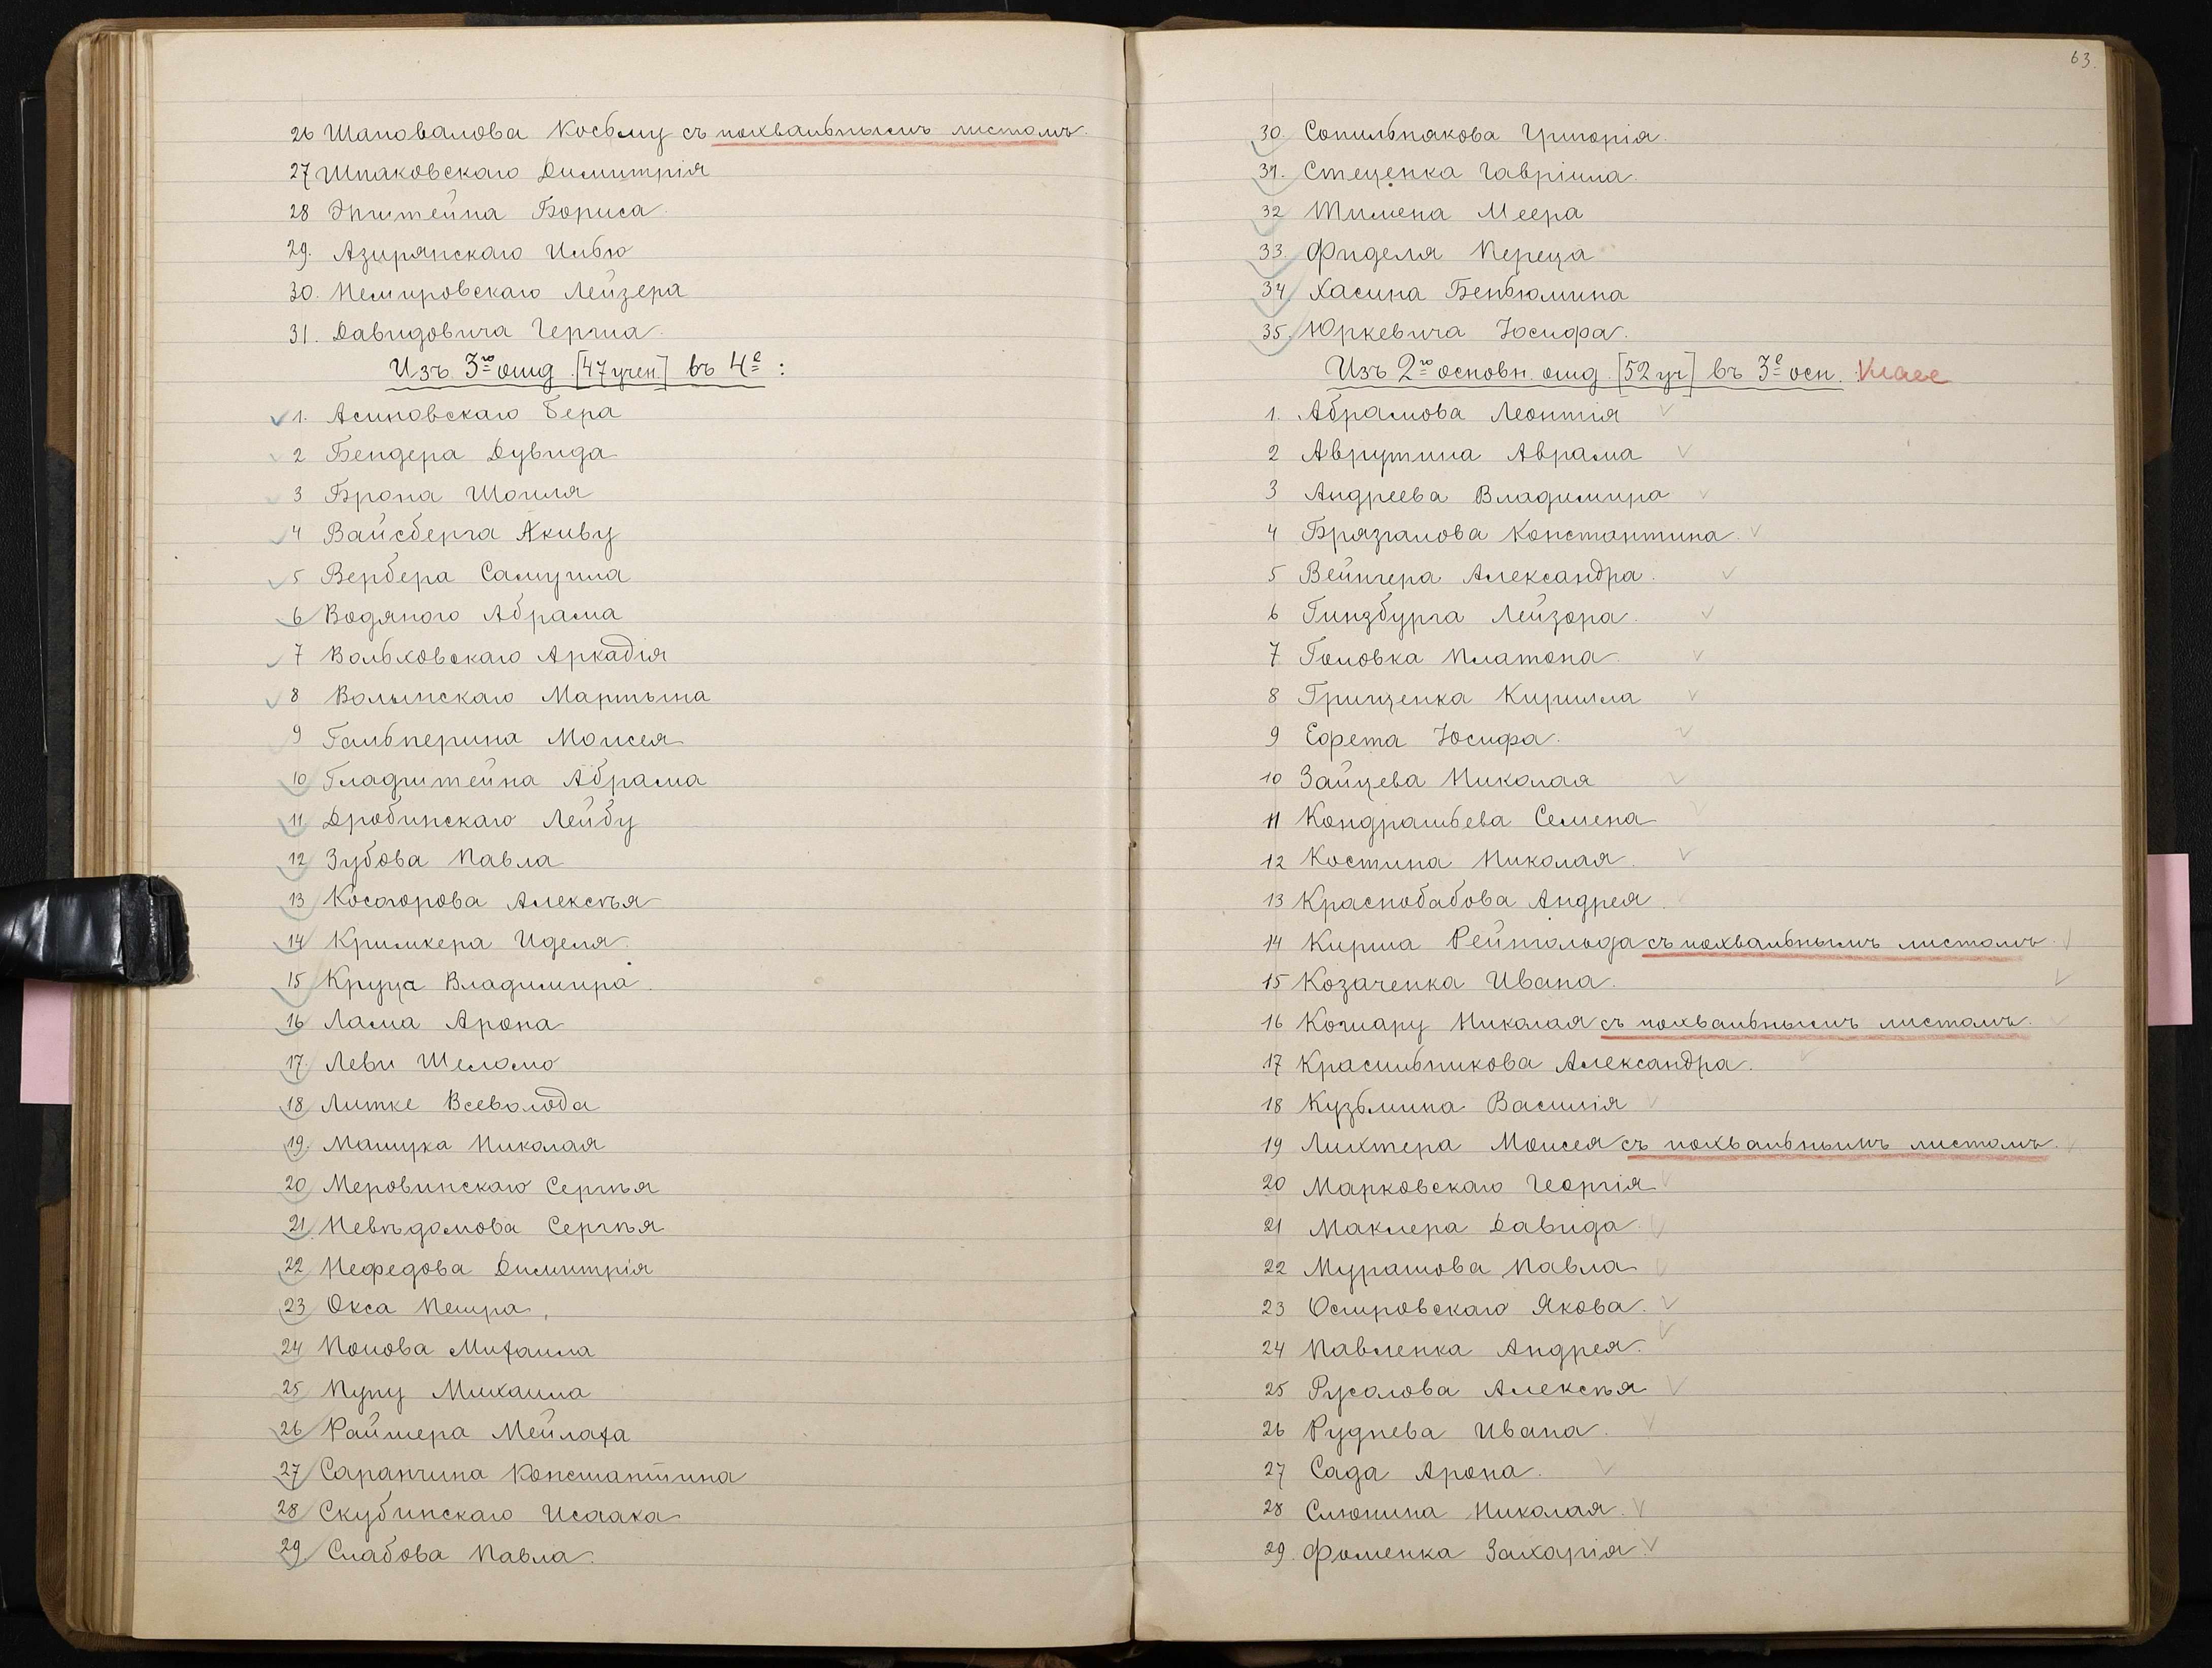 26 Шаповалова Косьму съ похвальнымъ листомъ.
27 Шпаковскаго Димитрія
28 Эпштейна Бориса.
29. Азирянскаго Илью
30. Немировскаго Лейзера
31. Давидовича Герша.
Изъ 3го отд. [47 учен.] въ 4е :
1. Асиновскаго Бера
2 Бендера Дувида
3 Брона Шоиля
4 Вайсберга Акиву
5 Вербера Самуила
6 Водяного Абрама
7 Вольховскаго Аркадія
8 Волынскаго Мартына
9 Гальперина Моисея
10 Гладштейна Абрама
11 Дробинскаго Лейбу
12 Зубова Павла
13 Косогорова Алексѣя
14 Кримкера Иделя.
15 Круца Владимира.
16 Лама Арона
17. Леви Шеломо
18 Литке Всеволода
19. Машука Николая
20 Меровинскаго Сергѣя
21. Невѣдомова Сергѣя
22 Нефедова Димитрія
23 Окса Петра.
24 Попова Михаила
25 Пупу Михаила
26 Раймера Мейлаха
27 Саранчина Константина
28 Скубинскаго Исаака
29. Слабова Павла.
63.
30. Сопильнякова Григорія.
31. Стеценка Гавріила.
32 Тилмена Меера
33. Фиделя Переца
34 Хасина Беньюмина
35. Юркевича Іосифа.
Изъ 2го основн. отд. [52 уч] въ 3е осн. класс
1. Абрамова Леонтія
2 Аврутина Аврама
3 Андреева Владимира
4 Брязгалова Константина.
5 Вейнгера Александра.
6 Гинзбурга Лейзора.
7 Головка Платона.
8 Грищенка Кирилла
9 Ефета Іосифа.
10 Зайцева Николая
11 Кондратьева Семена
12 Костина Николая.
13 Краснобабова Андрея.
14 Кирша Рейнгольда съ похвальнымъ листомъ.
15 Козаченка Ивана.
16 Кочмару Николая съ похвальнымъ листомъ.
17 Красильникова Александра.
18 Кузьмина Василія
19 Лихтера Моисея съ похвальнымъ листомъ.
20 Марковскаго Георгія
21 Маклера Давида.
22 Мурашова Павла
23 Островскаго Якова.
24 Павленка Андрея.
25 Русалова Алексѣя
26 Руднева Ивана.
27 Сада Арона.
28 Слюнина Николая.
29. Фоменка Захарія.